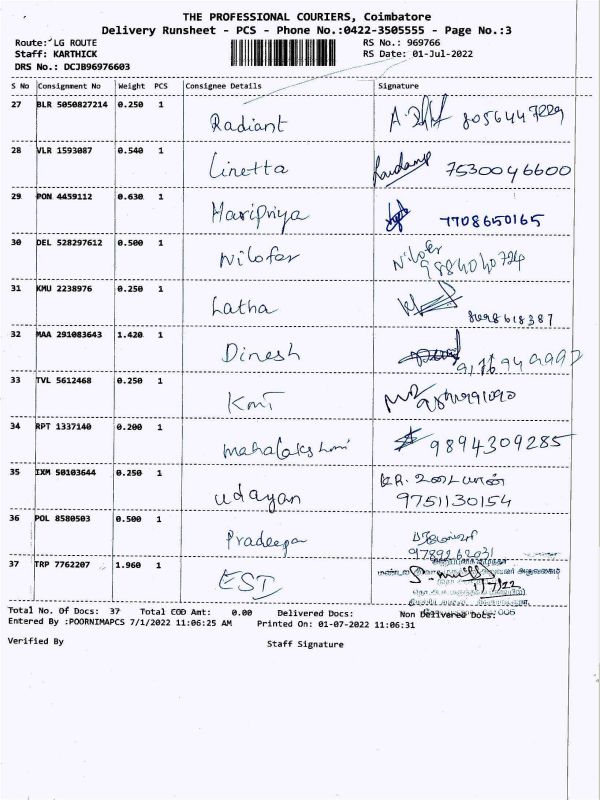 THE PROFESSIONAL COURIERS, Coimbatore
Delivery Runsheet - PCS - Phone No.:0422-3505555 - Page No.:3
Route: LG ROUTE RS No.: 969766
Staff: KARTHICK RS Date: 01-Jul-2022
DRS No.: DCJB96976603
S No Consignment No Weight PCS Consignee Details Signature
27 BLR 5050827214 0.250 1 Radiant 8056447229
28 VLR 1593087 0.540 1 Linetta 7530046600
29 PON 4459112 0.630 1 Haripriya 7708650165
30 DEL 528297612 0.500 1 Nilofer Nilofer 9884040724
31 KMU 2238976 0.250 1 Latha 8698618387
32 MAA 291083643 1.420 1 Dinesh
33 TVL 5612468 0.250 1 KMT
34 RPT 1337140 0.200 1 mahalakshmi 9894309285
35 IXM 50103644 0.250 1 udayan K.R. உடையான்
9751130154
36 POL 8580503 0.500 1 Pradeepa
9789262031
37 TRP 7762207 1.960 1 EST
1/7/22
Total No. Of Docs: 37 Total COD Amt: 0.00 Delivered Docs: Non Delivered Docs:
Entered By :POORNIMAPCS 7/1/2022 11:06:25 AM Printed On: 01-07-2022 11:06:31
Verified By Staff Signature